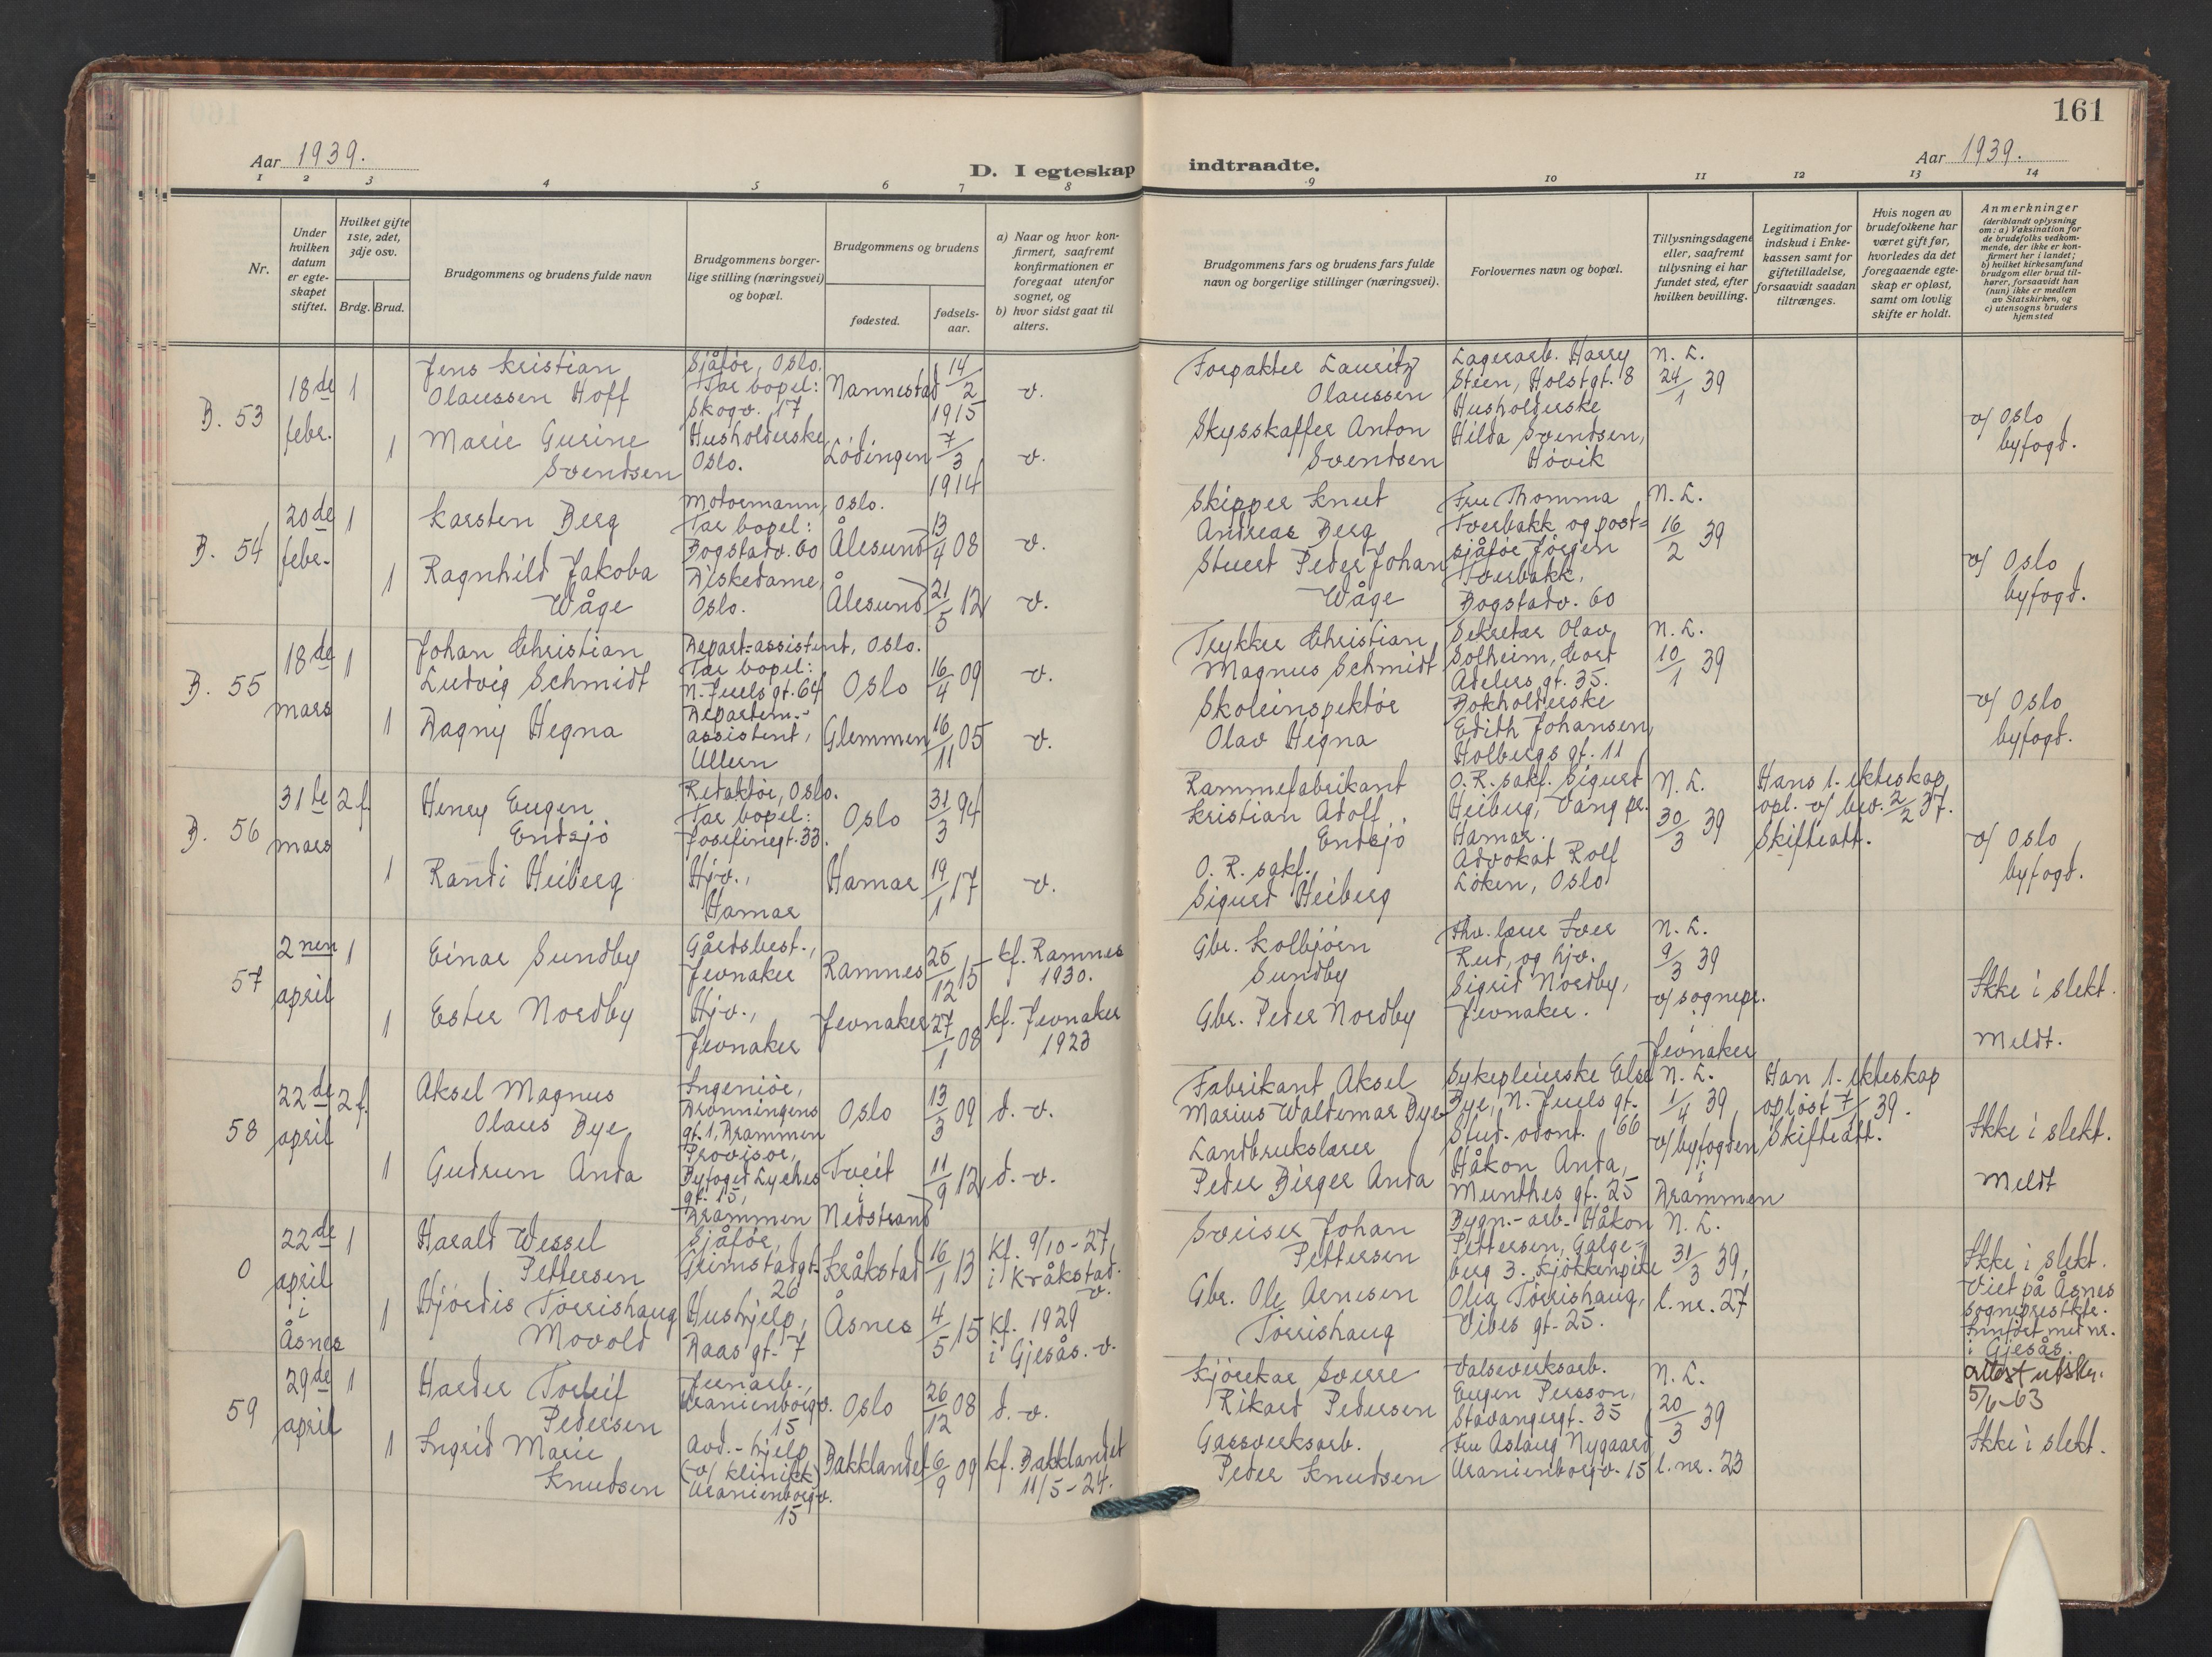 161
Aar 1939.
D. I egteskap indtraadte.
Aar 1939.
1 2 3 4 5 6 7 8 9 10 11 12 13 14
Nr.
Under hvilken datum er egteskapet stiftet.
Hvilket gifte 1ste, 2det, 3dje osv.
Brdg. Brud.
Brudgommens og brudens fulde navn
Brudgommens borgerlige stilling (næringsvei) og bopæl.
Brudgommens og brudens
fødested.
fødselsaar.
a) Naar og hvor konfirmert, saafremt konfirmationen er foregaat utenfor sognet, og
b) hvor sidst gaat til alters.
Brudgommens fars og brudens fars fulde navn og borgerlige stillinger (næringsvei).
Forlovernes navn og bopæl.
Tillysningsdagene eller, saafremt tillysning ei har fundet sted, efter hvilken bevilling.
Legitimation for indskud i Enkekassen samt for giftetilladelse, forsaavidt saadan tiltrænges.
Hvis nogen av brudefolkene har været gift før, hvorledes da det foregaaende egteskap er opløst, samt om lovlig skifte er holdt.
Anmerkninger
(deriblandt oplysning om: a) Vaksination for de brudefolks vedkommende, der ikke er konfirmert her i landet; b) hvilket kirkesamfund brudgom eller brud tilhører, forsaavidt han (hun) ikke er medlem av Statskirken, og c) utensogns bruders hjemsted
B. 53
18de febr.
1
Jens Kristian
Olaussen Hoff
Sjåfør, Oslo.
Tar bopel:
Skogv. 17
Nannestad
14/2 1915
v.
Forpakter Lauritz
Olaussen
Lagerarb. Harry
Steen, Holstgt. 8
N. L.
24/1 39
1
Marie Gurine
Svendsen
Husholderske
Oslo.
Lødingen
7/3 1914
v.
Skysskaffer Anton
Svendsen
Husholderske
Hilda Svendsen,
Høvik
v/ Oslo
byfogd.
B. 54
20de febr.
1
Karsten Berg
Motormann, Oslo.
Tar bopel:
Bogstadv. 60
Ålesund
13/4 08
v.
Skipper Knut
Andreas Berg
Fru Thomma
Tverbakk og post=
sjåfør Jørgen
Tverbakk,
Bogstadv. 60
N. L.
16/2 39
1
Ragnhild Jakoba
Wåge
Diskedame,
Oslo.
Ålesund
21/5 12
v.
Stuert Peder Johan
Wåge
v/ Oslo
byfogd.
B. 55
18de mars
1
Johan Christian
Ludvig Schmidt
Depart.-assistent, Oslo.
Tar bopel:
N. Juels gt. 64
Oslo
16/4 09
v.
Trykker Christian
Magnus Schmidt
Sekretær Olav
Solheim, Cort
Adelers gt. 35.
N. L.
10/1 39
1
Dagny Hegna
Departem.-
assistent,
Ullern
Glemmen
16/11 05
v.
Skoleinspektør
Olav Hegna
Bokholderske
Edith Johansen,
Holbergs gt. 11
v/ Oslo
byfogd.
B. 56
31te mars
2 f.
Henry Eugen
Endsjö
Redaktør, Oslo.
Tar bopel:
Josefinegt. 33.
Oslo
31/3 94
Rammefabrikant
Kristian Adolf
Endsjö
O. R. sakf. Sigurd
Heiberg, Vang pr.
Hamar.
N. L.
30/3 39
Hans 1. ekteskap
opl. v/ bev. 2/2 37.
Skifteatt.
1
Randi Heiberg
Hjv.,
Hamar
Hamar
19/1 17
v.
O. R. sakf.
Sigurd Heiberg
Advokat Rolf
Løken, Oslo
v/ Oslo
byfogd.
57
2nen april
1
Einar Sundby
Gårdsbest.,
Jevnaker
Ramnes
26/12 15
kf. Ramnes
1930.
Gbr. Kolbjørn
Sundby
Hv. lærer Iver
Rud, og hjv.
Sigrid Nordby,
Jevnaker.
N. L.
9/3 39
v/ sognepr.
i
Jevnaker
1
Ester Nordby
Hjv.,
Jevnaker
Jevnaker
27/1 08
kf. Jevnaker
1923
Gbr. Peder Nordby
Ikke i slekt.
Meldt.
58
22de april
2 f.
Aksel Magnus
Olaus Bye
Ingeniør,
Dronningens
gt. 1, Drammen
Oslo
13/3 09
d. v.
Fabrikant Aksel
Marius Waldemar Bye
Sykepleierske Else
Bye, N. Juels gt.
66
N. L.
1/4 39,
v/ byfogden
i
Drammen
Han 1. ekteskap
opløst 7/1 39.
Skifteatt.
1
Gudrun Anda
Provisor,
Byfogd Lyches
gt. 15,
Drammen
Tveit
i
Nedstrand
11/9 12
d. v.
Landbrukslærer
Peder Birger Anda
Stud. odont.
Håkon Anda,
Munthes gt. 25
Ikke i slekt.
Meldt
0
22de april
i
Åsnes
1
Harald Wessel
Pettersen
Sjåfør,
Grimstadgt.
26
Kråkstad
16/1 13
Kf. 9/10-27,
i Kråkstad.
v.
Sveiser Johan
Pettersen
Bygn.-arb. Håkon
Pettersen, Galge=
berg 3. Kjøkkenpike
Olga Tørrishaug,
Vibes gt. 25.
N. L.
31/3 39,
l. nr. 27
1
Hjørdis Tørrishaug
Movold
Hushjelp,
Daas gt. 7
Åsnes
4/5 15
Kf. 1929
i Gjesås. v.
Gbr. Ole Arnesen
Tørrishaug
Ikke i slekt.
Viet på Åsnes
sogneprestktr.
Innført med nr.
i Gjesås.
59
29de april
1
Harder Torleif
Pedersen
Jernarb.,
Uranienborgv.
15
Oslo
26/12 08
d. v.
Kjørekar Sverre
Rikard Pedersen
Valseverksarb.
Eugen Persson,
Stavangergt. 35
N. L.
20/3 39
l. nr. 23
Attest utskr.
5/6-63
1
Ingrid Marie
Knudsen
Avd.-hjelp
(v/ klinikk)
Uranienborgv.
15
Bakklandet
6/9 09
kf. Bakklandet
11/5-24.
Gassverksarb.
Peder Knudsen
Fru Aslaug Nygaard
Uranienborgv. 15
Ikke i slekt.